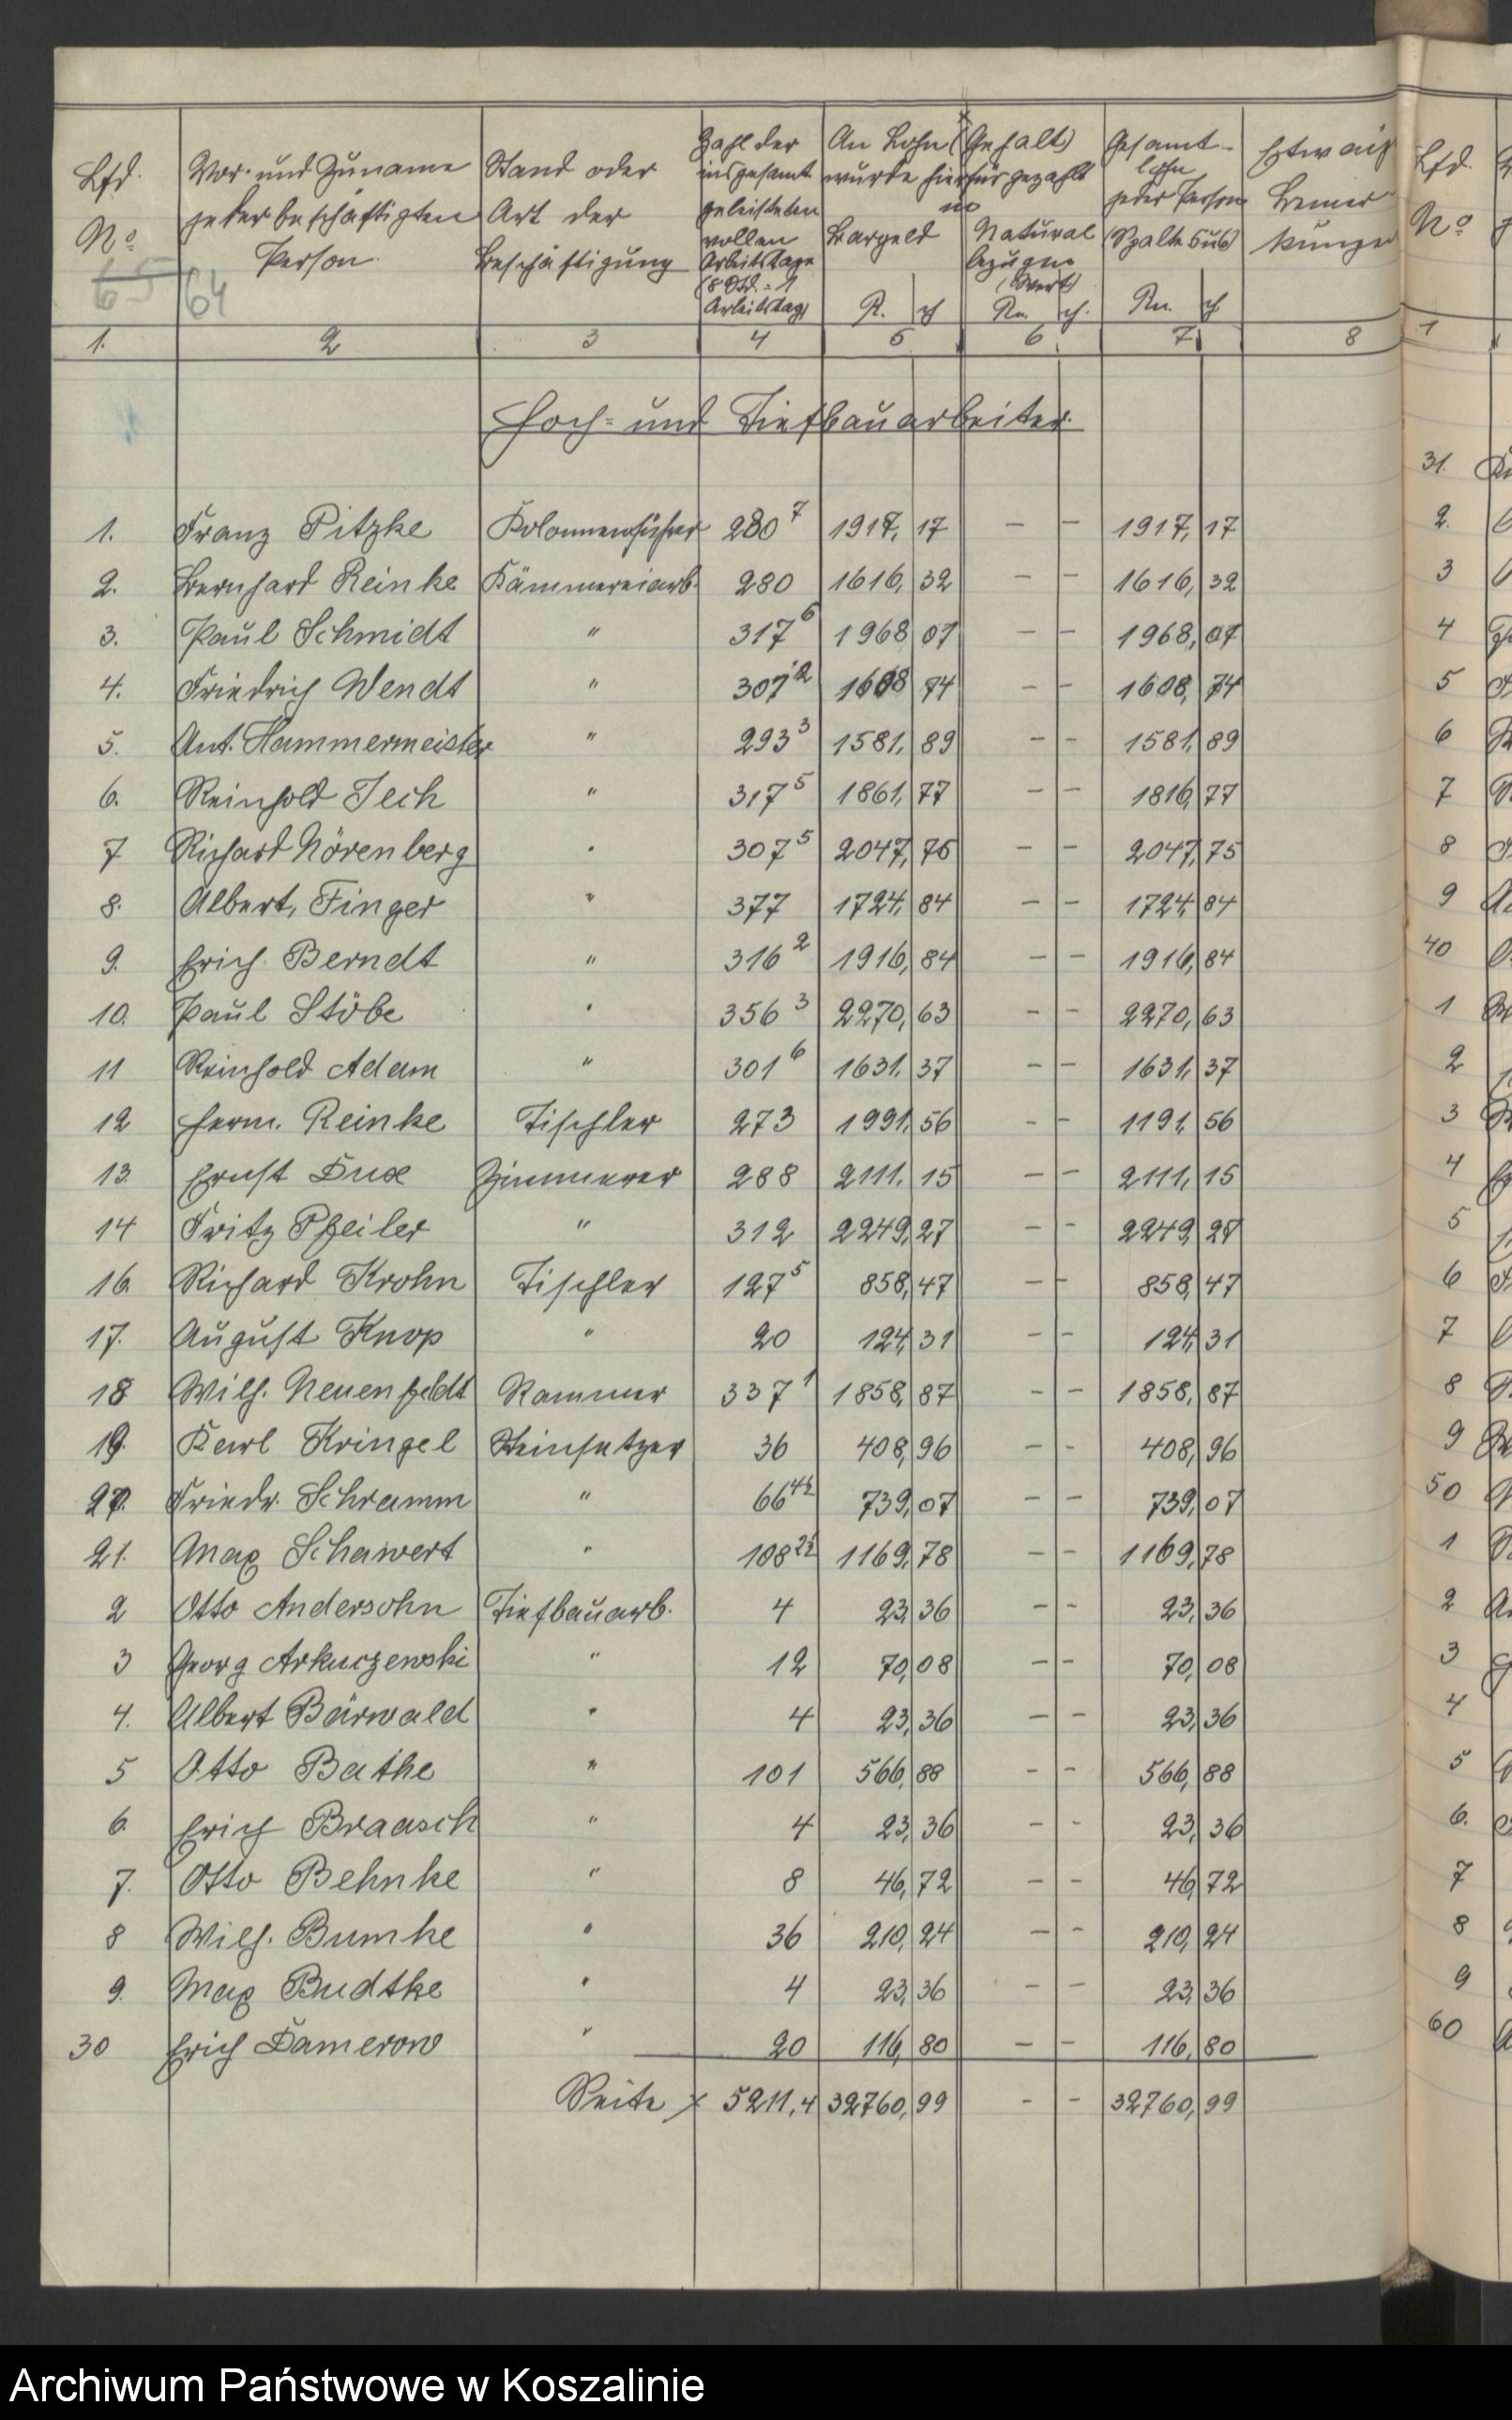 Lfd. No
Vor- und Zuname jeder beschäftigten Person
Stand oder Art der Beschäftigung
Zahl der insgesamt geleisteten vollen Arbeitstage (8 Std. = 1 Arbeitstag)
An Lohn (Gehalt) wurde hierfür gezahlt
Bargeld
Natural bezüge (Wert)
Gesamt-lohn jeder Person (Spalte 5 u 6)
Etwaige Bemerkungen
65 64
1. 2 3 4 5 6 7 8
Hoch- und Tiefbauarbeiter.
1. Franz Pitzke Kolonnenführer 280 7 1917, 17 – – 1917, 17
2. Bernhard Reinke Kämmereiarb. 280 1616, 32 – – 1616, 32
3. Paul Schmidt " 317 6 1968 07 – – 1968, 07
4. Friedrich Wendt " 307 2 1608 74 – – 1608, 74
5. Ant. Hammermeister " 293 3 1581, 89 – – 1581, 89
6. Reinhold Tech " 317 5 1861, 77 – – 1816, 77
7 Richard Nörenberg " 307 5 2047, 75 – – 2047, 75
8. Albert, Finger " 377 1724, 84 – – 1724, 84
9. Erich Berndt " 316 2 1916, 84 – – 1916, 84
10. Paul Stöbe " 356 3 2270, 63 – – 2270, 63
11 Reinhold Adam " 301 6 1631, 37 – – 1631, 37
12 Herm. Reinke Tischler 273 1991, 56 – – 1191, 56
13. Ernst Dux Zimmerer 288 2111, 15 – – 2111, 15
14 Fritz Pfeiler " 312 2249, 27 – – 2249, 27
16. Richard Krohn Tischler 127 5 858, 47 – – 858, 47
17. August Knop " 20 124, 31 – – 124, 31
18 Wilh. Neuenfeldt Rammer 337 1 1858, 87 – – 1858, 87
19. Karl Kringel Steinsetzer 36 408, 96 – – 408, 96
20. Friedr. Schramm " 66 4½ 739, 07 – – 739, 07
21. Max Schawert " 108 2½ 1169, 78 – – 1169, 78
2 Otto Andersohn Tiefbauarb. 4 23, 36 – – 23, 36
3 Georg Arkuszewski " 12 70, 08 – – 70, 08
4. Albert Bärwald " 4 23, 36 – – 23, 36
5 Otto Bathe " 101 566, 88 – – 566, 88
6 Erich Braasch " 4 23, 36 – – 23, 36
7. Otto Behnke " 8 46, 72 – – 46, 72
8 Wilh. Bumke " 36 210, 24 – – 210, 24
9. Max Budtke " 4 23, 36 – – 23, 36
30 Erich Damerow " 20 116, 80 – – 116, 80
Seite x 5211,4 32760, 99 – – 32760, 99
Lfd. No
1
31.
2.
3
4
5
6
7
8
9
40
1
2
3
4
5
6
7
8
9
50
1
2
3
4
5
6.
7
8
9
60
Archiwum Państwowe w Koszalinie